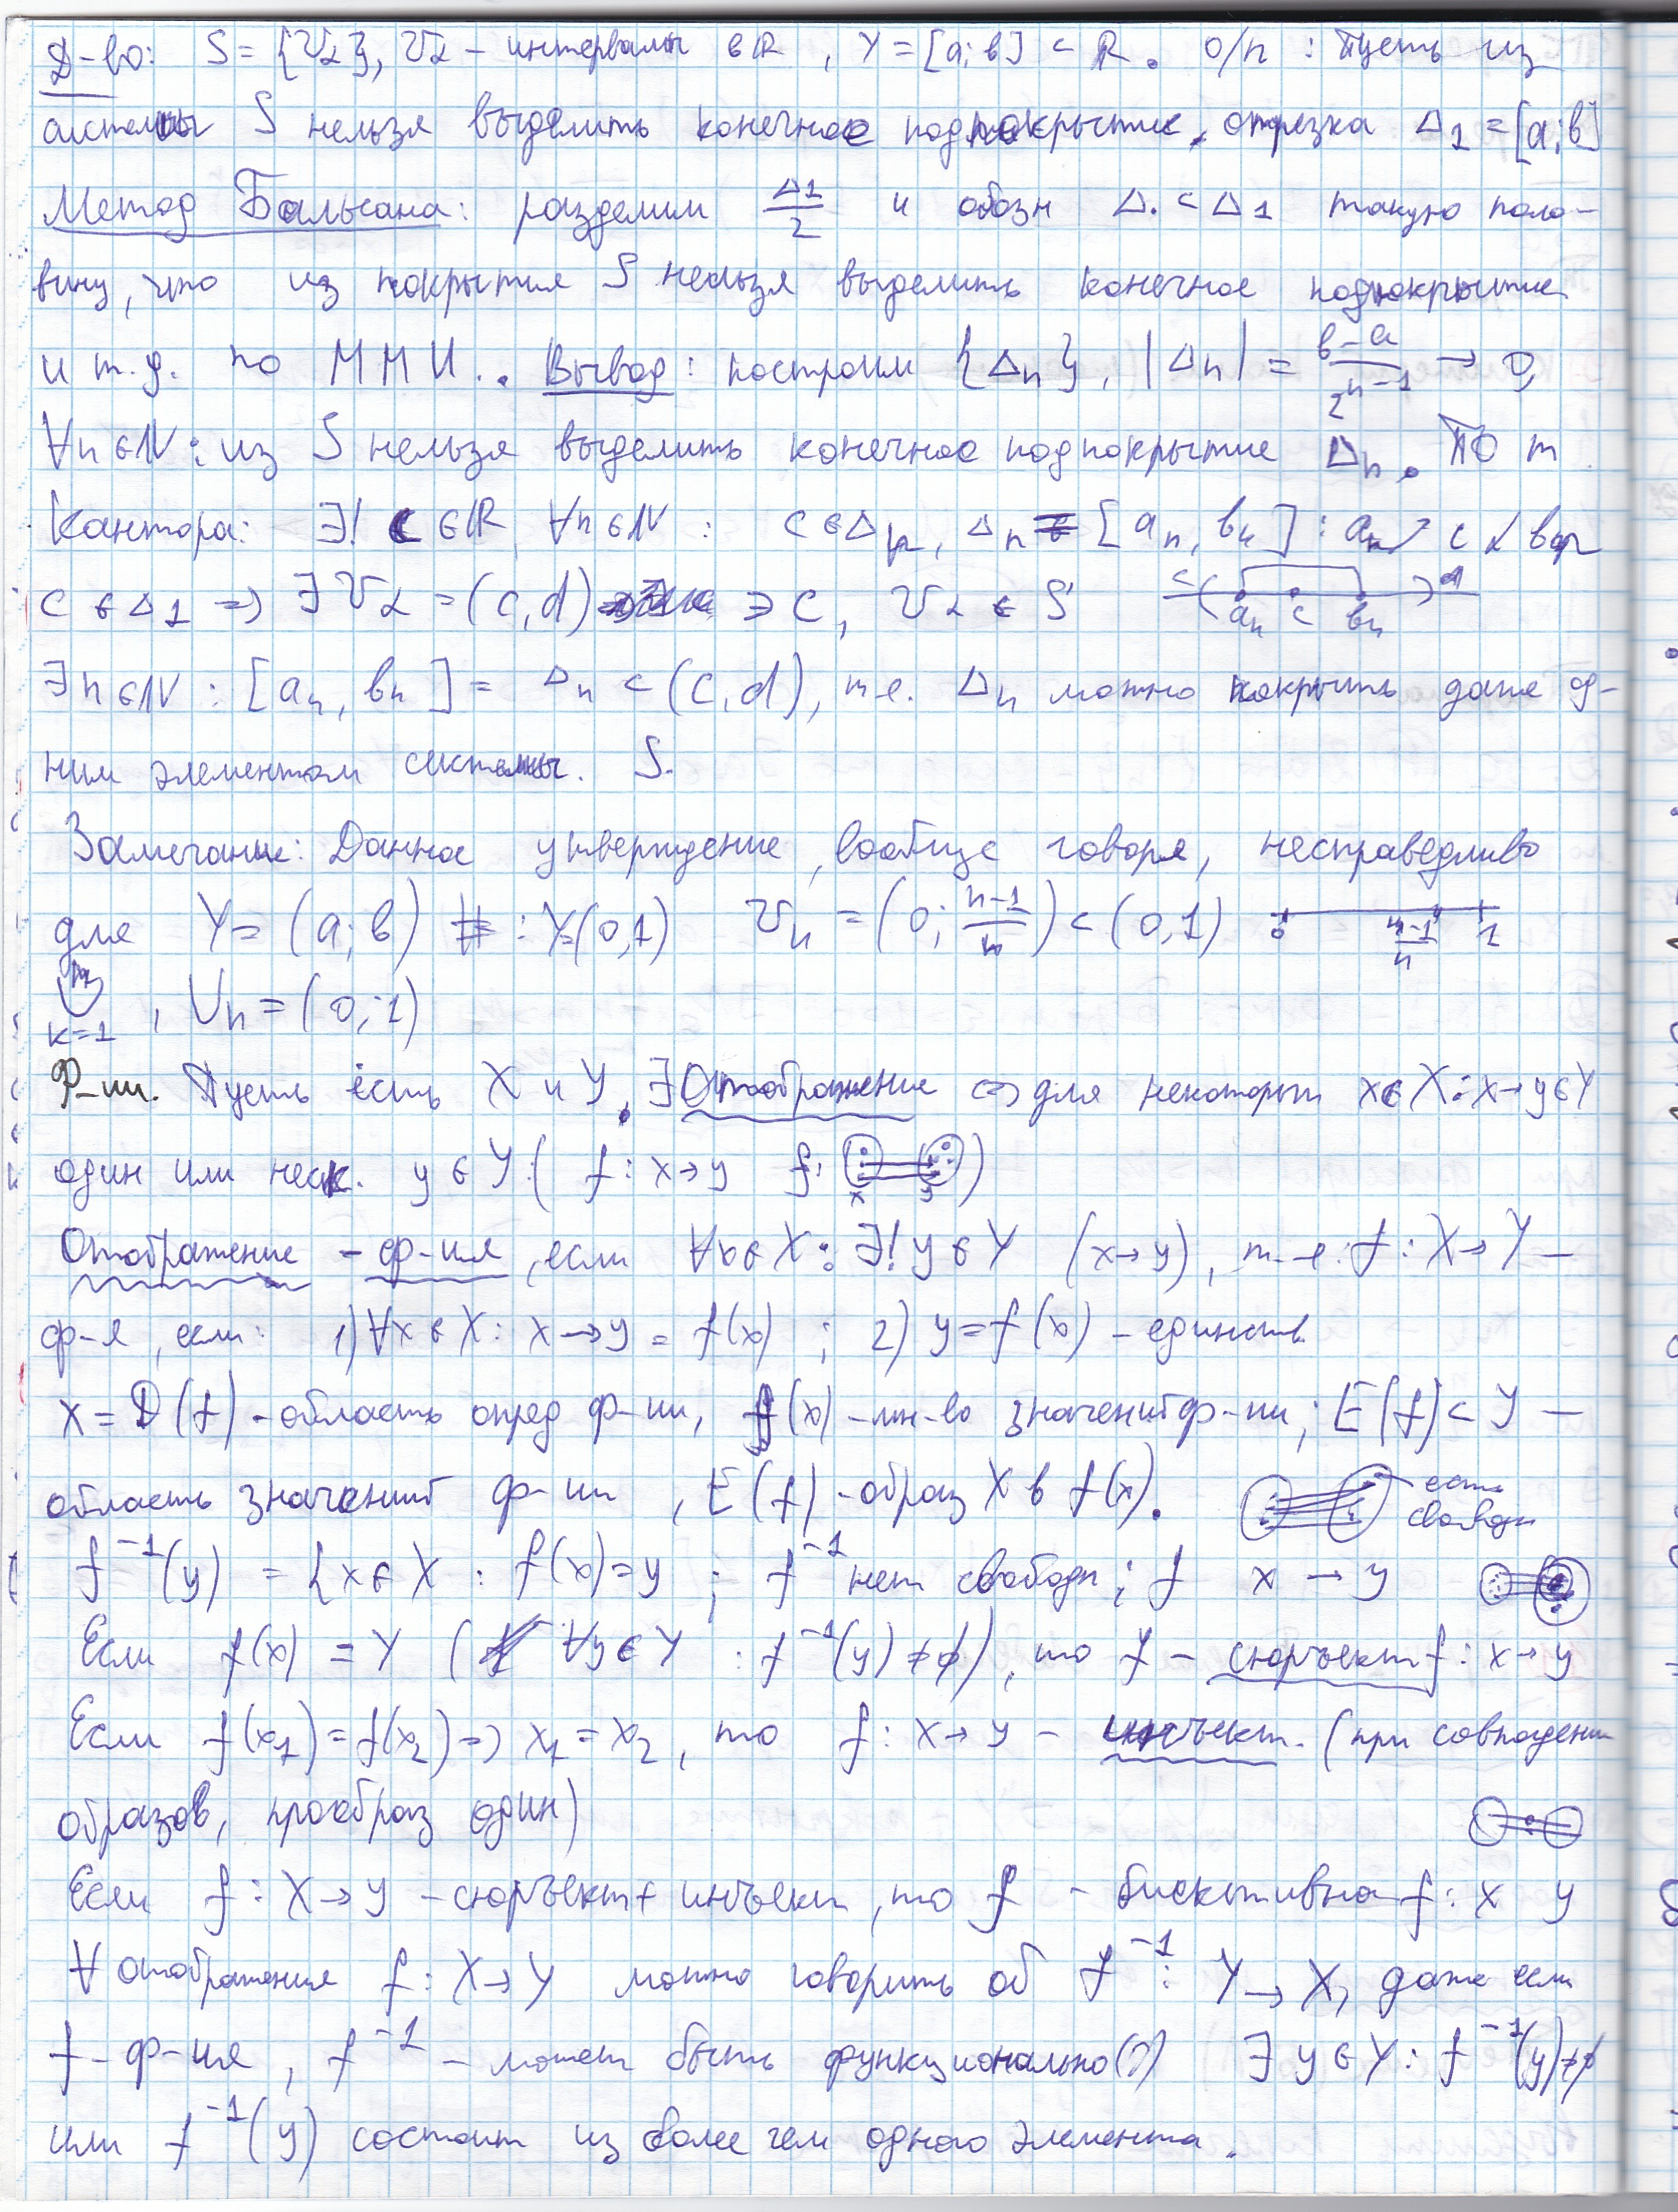 Д-во: S = {V_α}, V_α – интервалы в R, Y = [a; b] ⊂ R. О/п : Пусть из
системы S нельзя выделить конечное подпокрытие, отрезка Δ_1 = [a; b]
Метод Больсана: разделим Δ1/2 и обозн Δ. ⊂ Δ1 такую поло-
вину, что из покрытия S нельзя выделить конечное подпокрытие
и т.д. по ММИ.. Вывод: построим {Δn}, |Δn| = (b-a)/2^(n-1) → 0,
∀n∈N: из S нельзя выделить конечное подпокрытие Δn. По т
Кантора: ∃! c∈R, ∀n∈N : c∈Δn, Δn = [an, bn] : an↗ c ↙ bn
c∈Δ1 => ∃V_α = (c, d) ∋ c, V_α ∈ S c ( an c bn ) d
∃n∈N : [an, bn] = Δn ⊂ (c, d), т.е. Δn можно покрыть даже од-
ним элементом системы. S.
Замечание: Данное утверждение, вообще говоря, несправедливо
для Y = (a; b) # : Y=(0,1) Vn = (0; (n-1)/n) ⊂ (0,1) 0 (n-1)/n 1
∪ k=1 , Un = (0;1)
Ф-ии. Пусть есть X и Y. ∃ Отображение <=> для некоторых x∈X: x→y∈Y
один или неск. y∈Y ( f : x→y f: x y )
Отображение – ф-ия, если ∀x∈X: ∃! y∈Y (x→y), т-е. f : X→Y –
ф-я, если: 1) ∀x∈X: x→y = f(x) ; 2) y=f(x) – единств.
X = D(f) – область опред ф-ии, f(x) – мн-во значений ф-ии; E(f) ⊂ Y –
область значений ф-ии, E(f) – образ X в f(x). есть свободн
f^-1(y) = {x∈X : f(x)=y ; f^-1 нет свободн; f x → y
Если f(x) = Y ( ∀y∈Y : f^-1(y) ≠ ∅), то f – сюръект f : x→y
Если f(x1)=f(x2) => x1 = x2, то f : X→y – инъект. (при совпадении
образов, прообраз один)
Если f : X→y – сюръект + инъект, то f – биективна f : x y
∀ отображения f : X→Y можно говорить об f^-1 : Y→X, даже если
f – ф-ия, f^-1 – может быть функционально(?) ∃ y∈Y : f^-1(y)≠∅
или f^-1(y) состоит из более чем одного элемента.